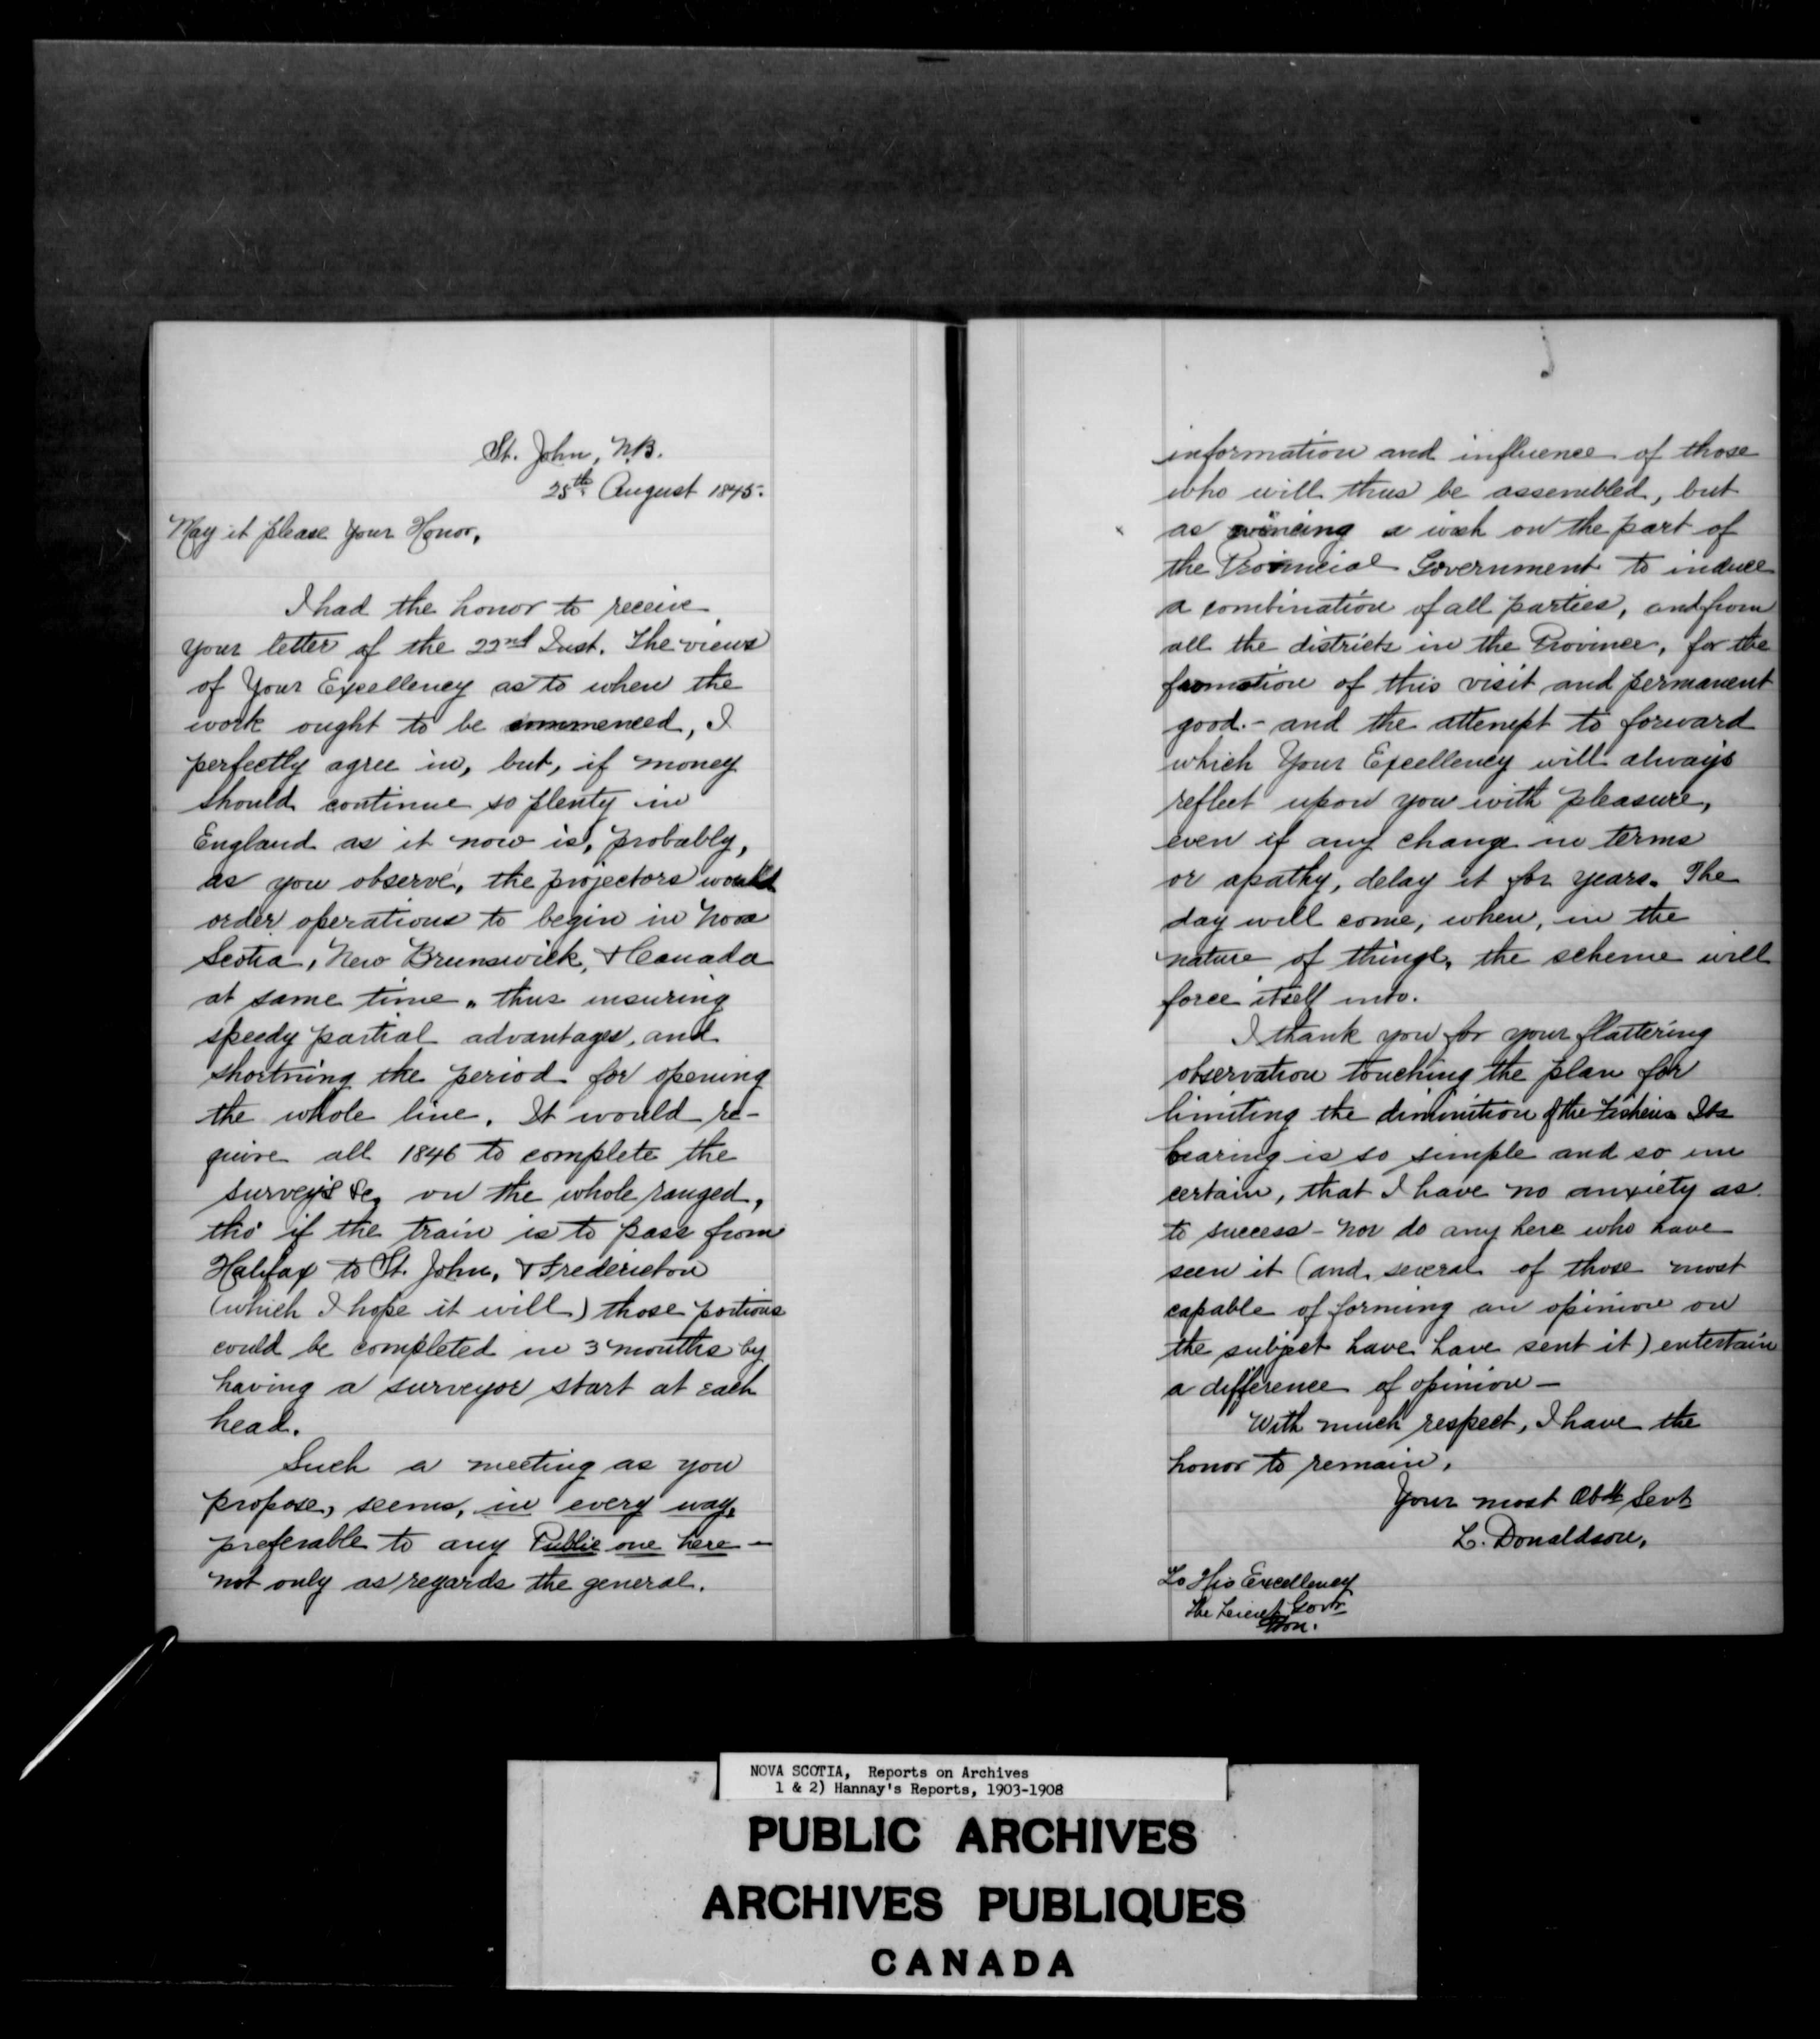 St. John, N.B.
25th August 1845.
May it please Your Honor,
I had the honor to receive
your letter of the 22nd Inst. The views
of Your Excellency as to when the
work ought to be commenced, I
perfectly agree in, but, if money
should continue so plenty in
England as it now is, probably,
as you observe, the projectors would
order operations to begin in Nova
Scotia, New Brunswick, & Canada
at same time, thus insuring
speedy partial advantages, and
shortning the period for opening
the whole line. It would re-
quire all 1846 to complete the
surveys &c, on the whole ranged,
tho' if the train is to pass from
Halifax to St. John, & Fredericton
(which I hope it will) those portions
could be completed in 3 months by
having a surveyor start at each
head.
Such a meeting as you
propose, seems, in every way,
preferable to any Public one here -
not only as regards the general.
information and influence of those
who will thus be assembled, but
as evincing a wish on the part of
the Provincial Government to induce
a combination of all parties, and from
all the districts in the Province, for the
promotion of this visit and permanent
good. - and the attempt to forward
which Your Excellency will always
reflect upon you with pleasure,
even if any change in terms
or apathy, delay it for years. The
day will come, when, in the
nature of things, the scheme will
force itself into.
I thank you for your flattering
observation touching the plan for
limiting the diminition of the Fisheries Its
bearing is so simple and so un
certain, that I have no anxiety as
to success - nor do any here who have
seen it (and several of those most
capable of forming an opinion on
the subject have have sent it) entertain
a difference of opinion -
With much respect, I have the
honor to remain,
Your most Obdt Servt
L. Donaldson,
To His Excellency
The Lieut Govr
NOVA SCOTIA, Reports on Archives
1 & 2) Hannay's Reports, 1903-1908
PUBLIC ARCHIVES
ARCHIVES PUBLIQUES
CANADA